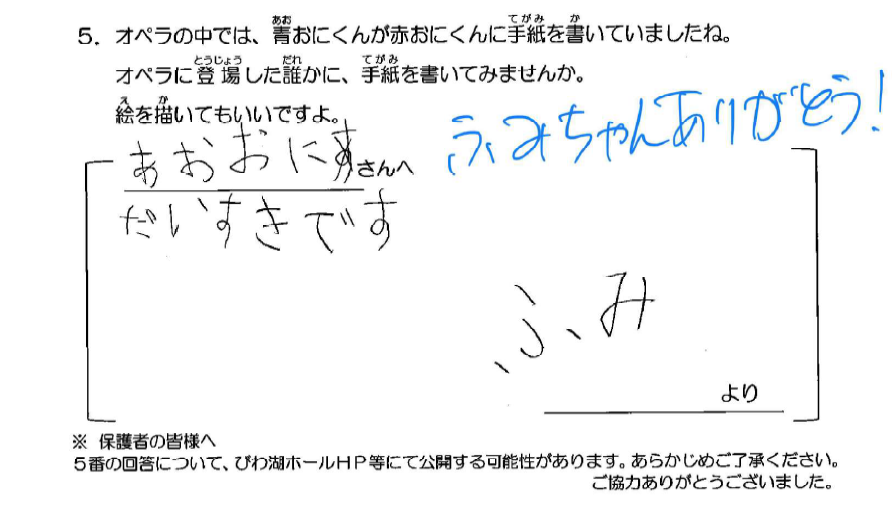 5. オペラの中では、青おにくんが赤おにくんに手紙を書いていましたね。
オペラに登場した誰かに、手紙を書いてみませんか。
絵を描いてもいいですよ。
ふみちゃんありがとう!
あおおに さんへ
だいすきです
ふみ
より
※ 保護者の皆様へ
5番の回答について、びわ湖ホールHP等にて公開する可能性があります。あらかじめご了承ください。
ご協力ありがとうございました。